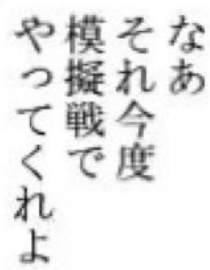 なあ
それ今度
模擬戦で
やってくれよ